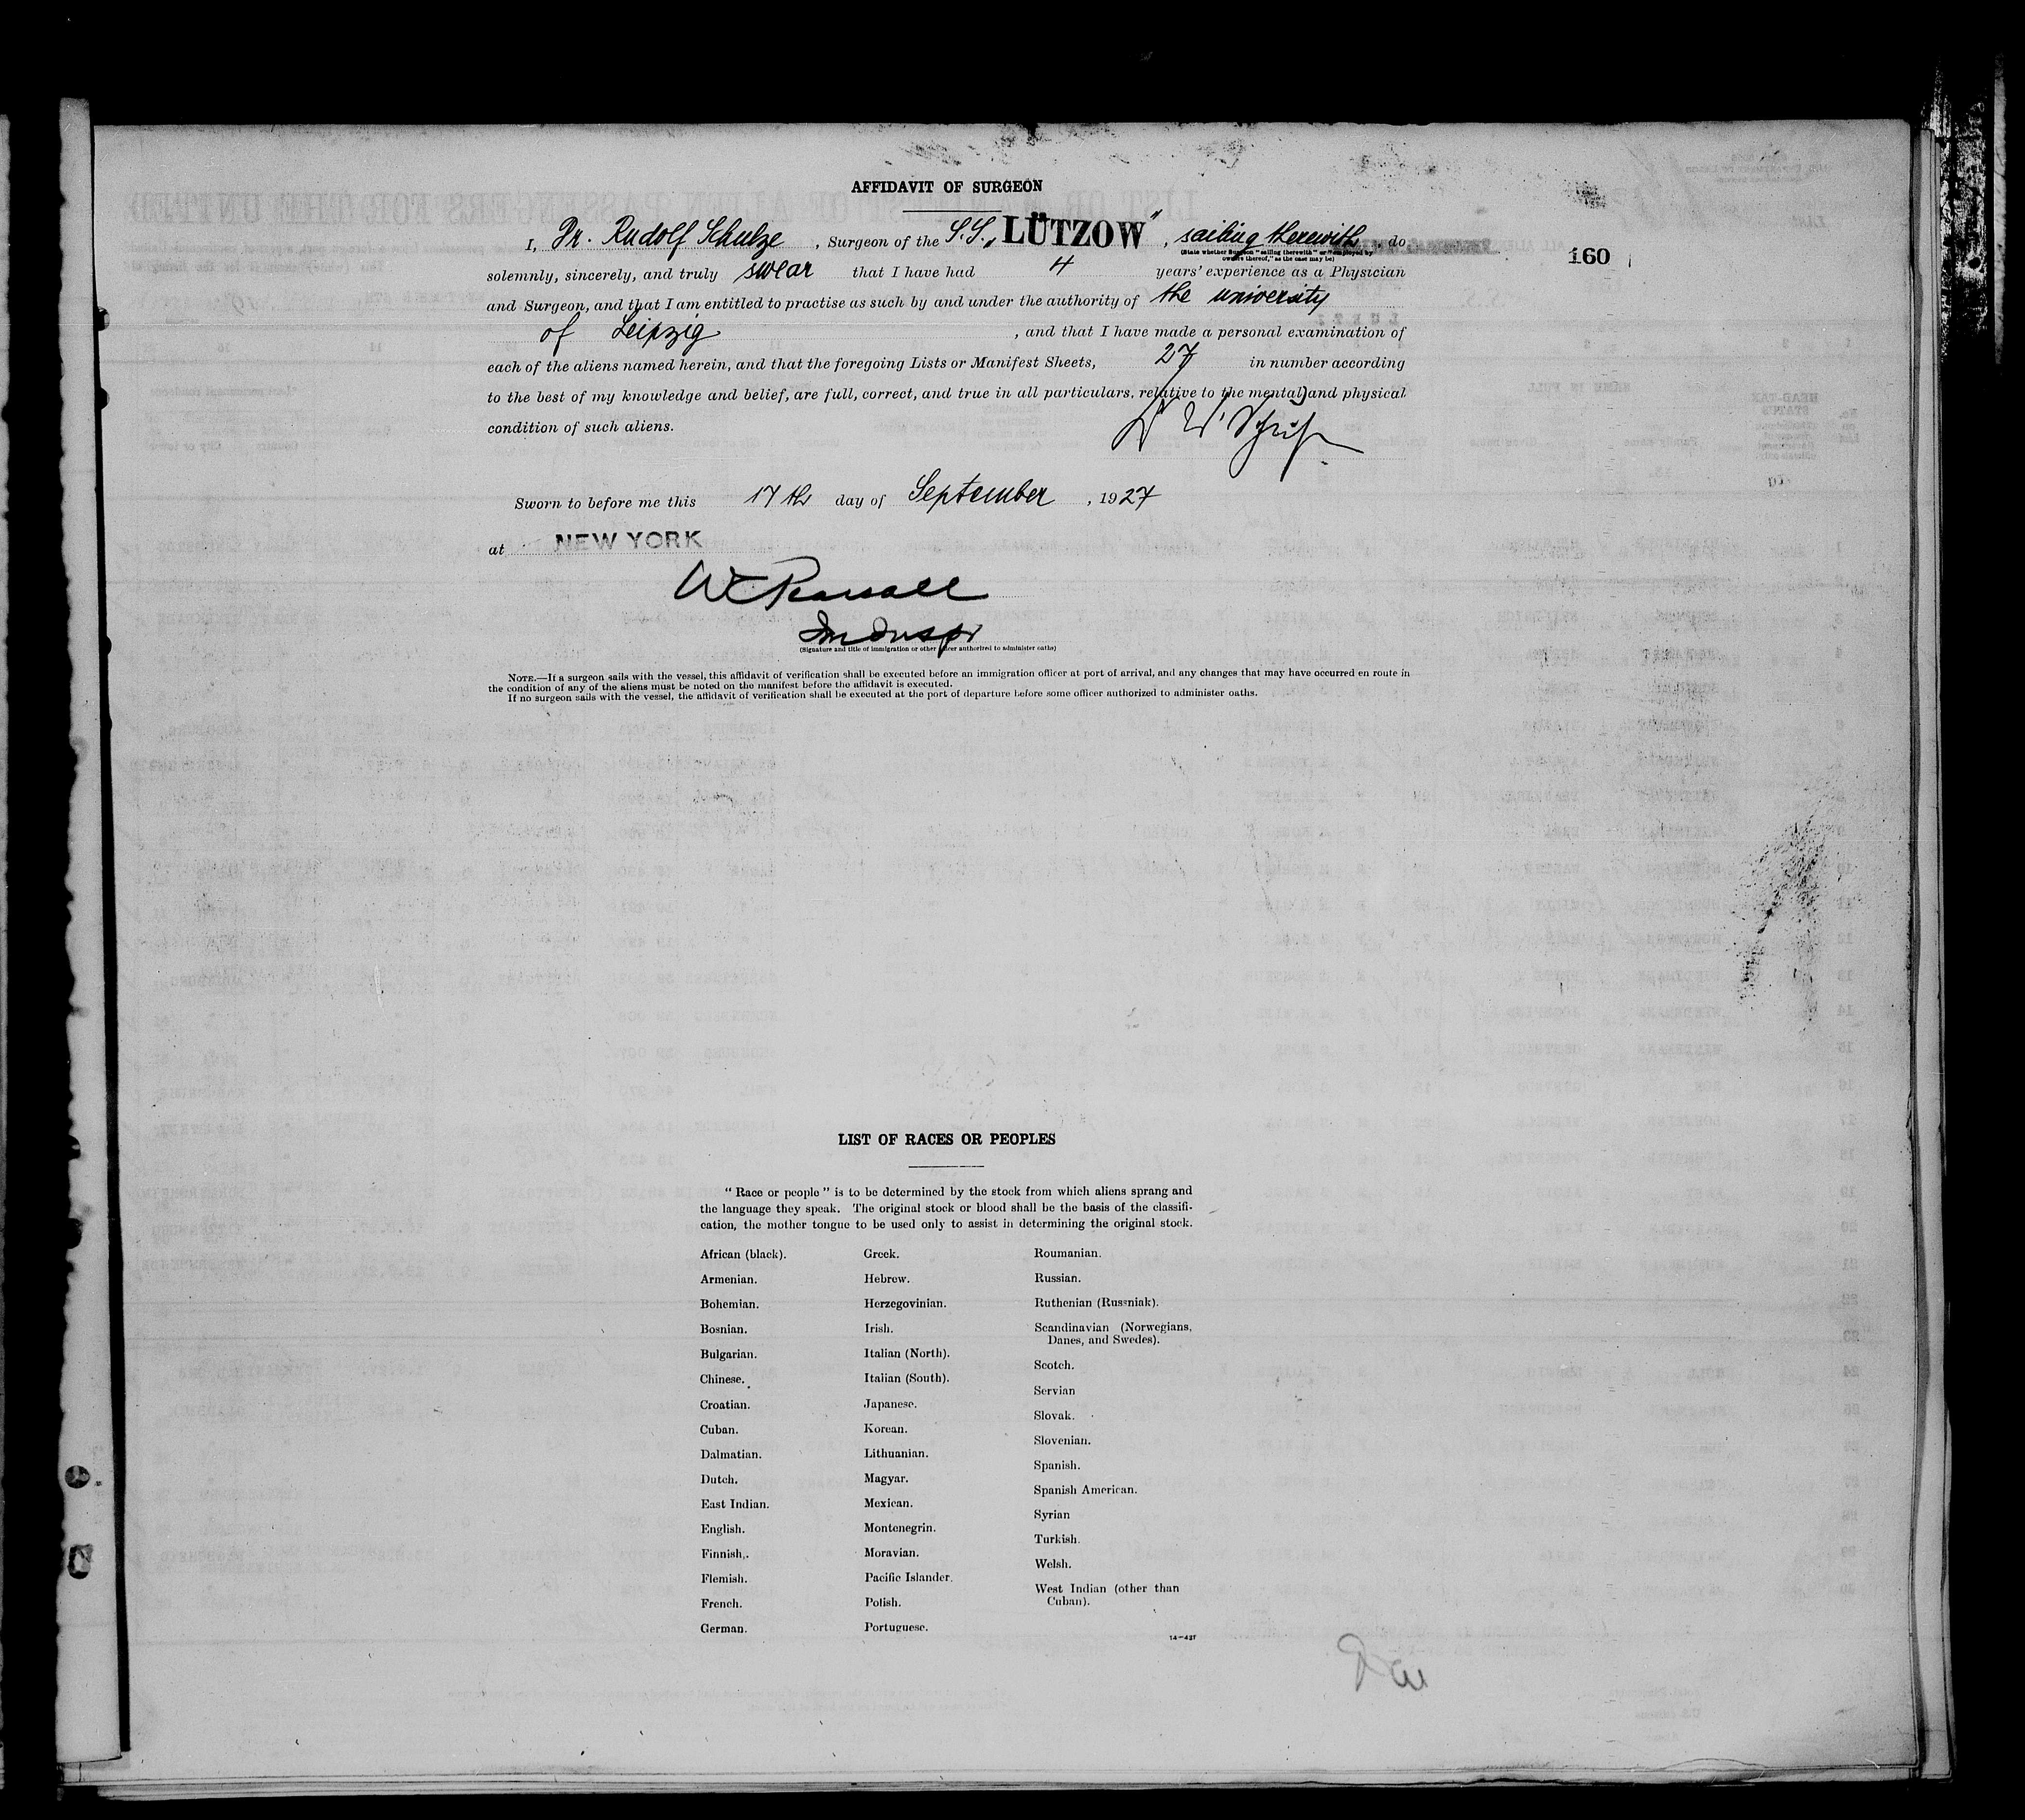 AFFIDAVIT OF SURGEON
I, Dr. Rudolf Schulze , Surgeon of the S.S. „LÜTZOW" , sailing therewith , do
(State whether Surgeon "sailing therewith" or "employed by
owners thereof," as the case may be)
160
solemnly, sincerely, and truly swear that I have had 4 years' experience as a Physician
and Surgeon, and that I am entitled to practise as such by and under the authority of the university
of Leipzig , and that I have made a personal examination of
each of the aliens named herein, and that the foregoing Lists or Manifest Sheets, 27 in number according
to the best of my knowledge and belief, are full, correct, and true in all particulars, relative to the mental and physical
condition of such aliens.
Sworn to before me this 17th day of September , 1927
at NEW YORK
(Signature and title of immigration or other officer authorized to administer oaths)
NOTE.—If a surgeon sails with the vessel, this affidavit of verification shall be executed before an immigration officer at port of arrival, and any changes that may have occurred en route in
the condition of any of the aliens must be noted on the manifest before the affidavit is executed.
If no surgeon sails with the vessel, the affidavit of verification shall be executed at the port of departure before some officer authorized to administer oaths.
LIST OF RACES OR PEOPLES
"Race or people" is to be determined by the stock from which aliens sprang and
the language they speak. The original stock or blood shall be the basis of the classifi-
cation, the mother tongue to be used only to assist in determining the original stock.
African (black).
Armenian.
Bohemian.
Bosnian.
Bulgarian.
Chinese.
Croatian.
Cuban.
Dalmatian.
Dutch.
East Indian.
English.
Finnish.
Flemish.
French.
German.
Greek.
Hebrew.
Herzegovinian.
Irish.
Italian (North).
Italian (South).
Japanese.
Korean.
Lithuanian.
Magyar.
Mexican.
Montenegrin.
Moravian.
Pacific Islander.
Polish.
Portuguese.
Roumanian.
Russian.
Ruthenian (Russniak).
Scandinavian (Norwegians,
Danes, and Swedes).
Scotch.
Servian
Slovak.
Slovenian.
Spanish.
Spanish American.
Syrian
Turkish.
Welsh.
West Indian (other than
Cuban).
14—427